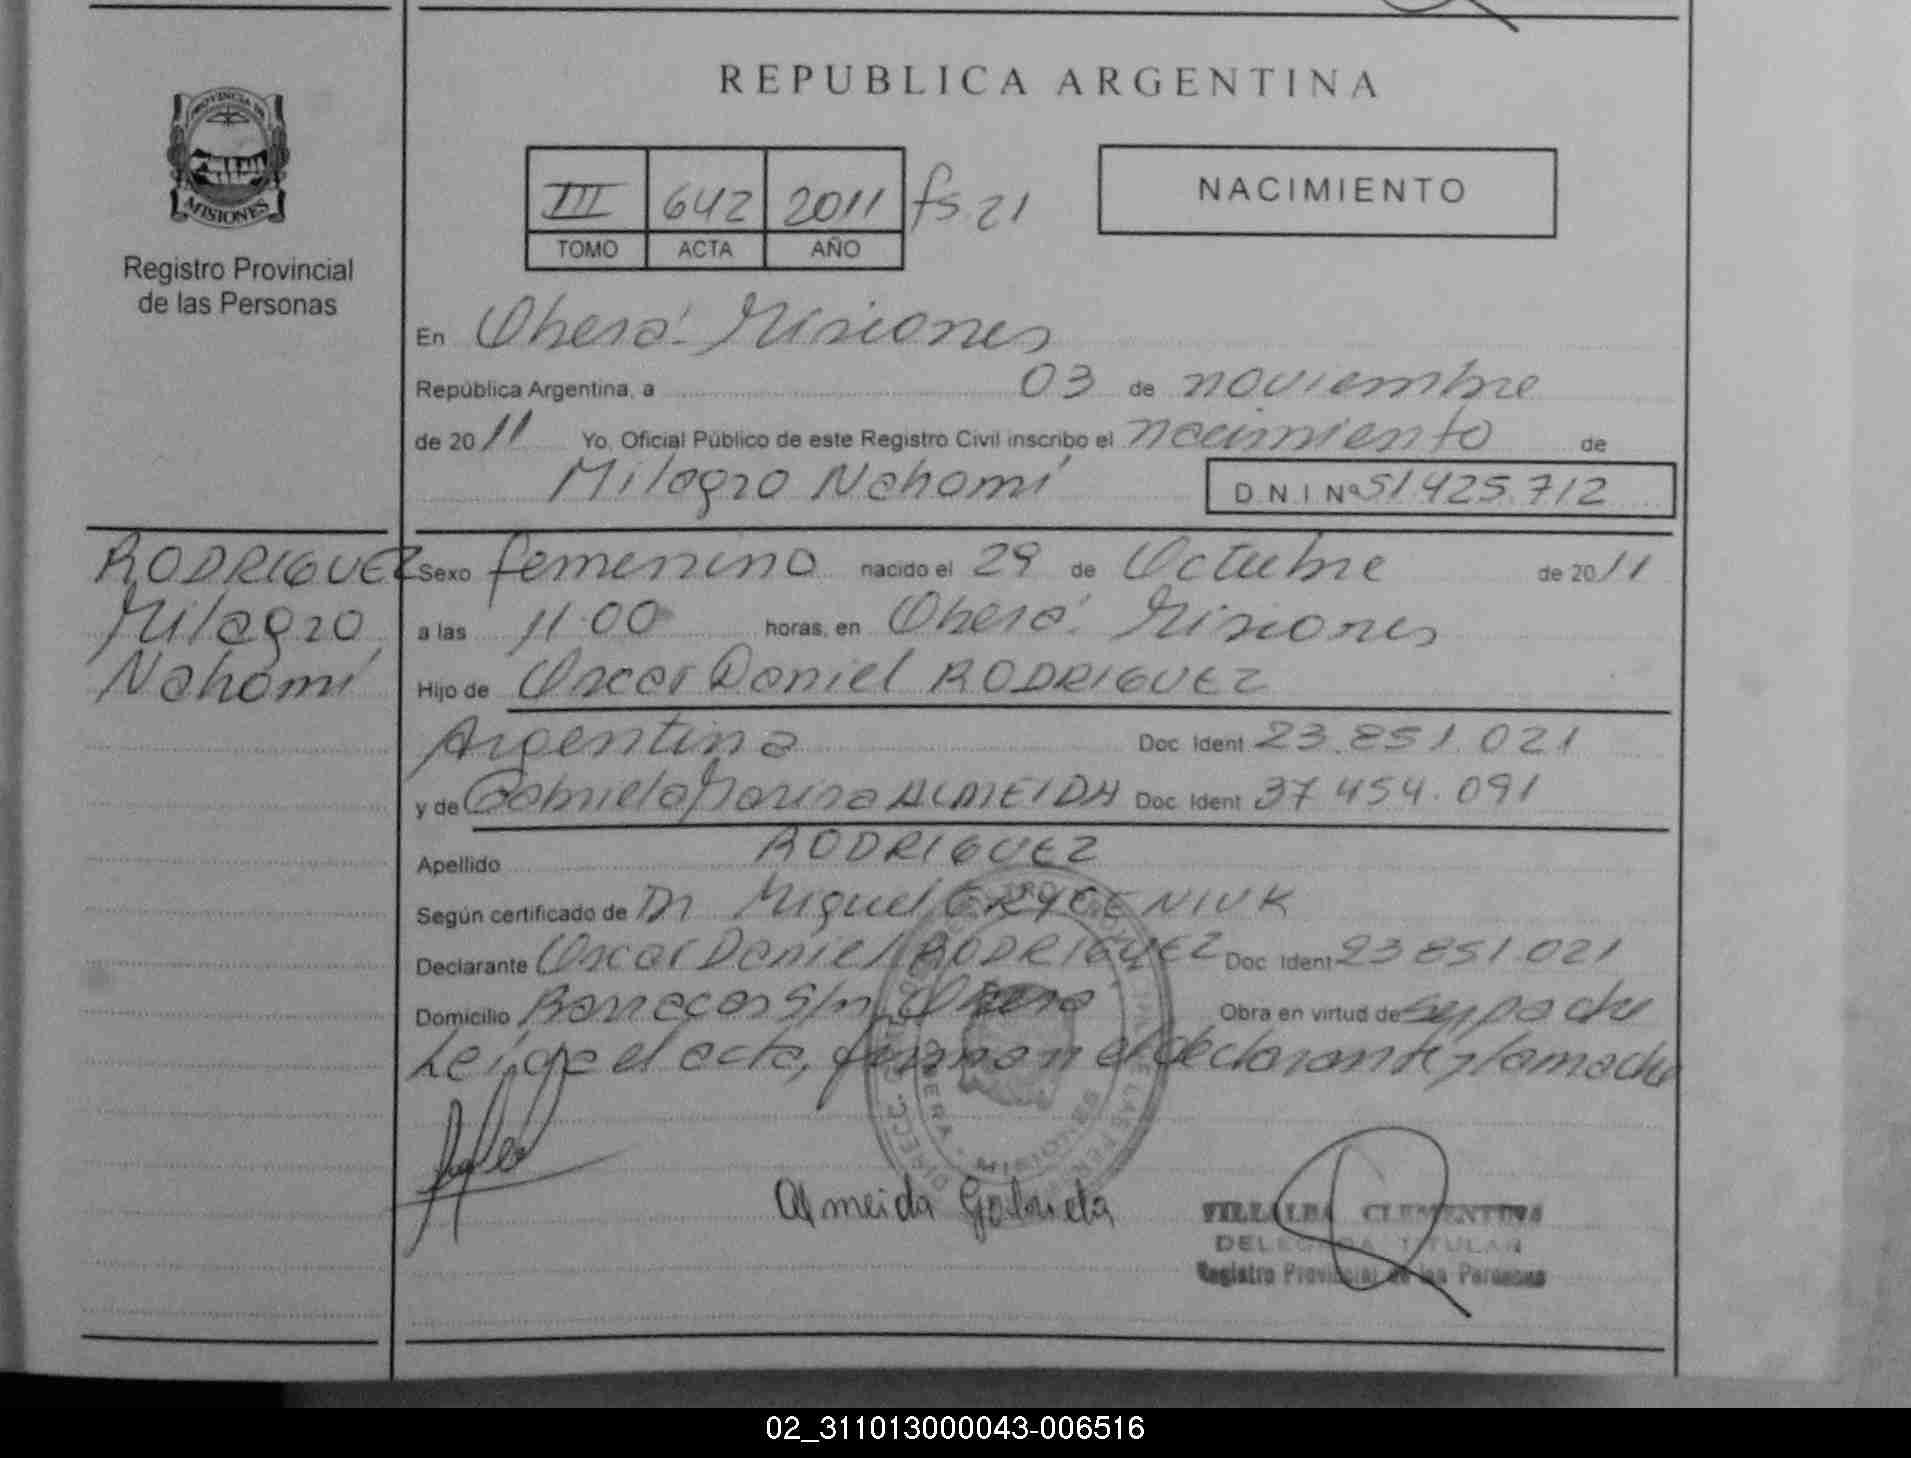 REPUBLICA ARGENTINA
PROVINCIA DE
MISIONES
Registro Provincial
de las Personas
III 642 2011 fs 21
TOMO ACTA AÑO
NACIMIENTO
En Oberá. Misiones
República Argentina, a 03 de noviembre
de 2011 Yo, Oficial Público de este Registro Civil inscribo el nacimiento de
Milagro Nahomí D N I Nº 51.425.712
RODRIGUEZ
Milagro
Nahomí
Sexo femenino nacido el 29 de Octubre de 2011
a las 11.00 horas, en Oberá. Misiones
Hijo de Oscar Daniel RODRIGUEZ
Argentina Doc Ident 23.851.021
y de Gabriela Marisa ALMEIDA Doc Ident 37 454.091
Apellido RODRIGUEZ
Según certificado de Dr Miguel
Declarante Oscar Daniel RODRIGUEZ Doc Ident 23 851.021
Domicilio Barracas S/n Oberá Obra en virtud de ser padre
Leída el acta, firman el declarante y la madre
Almeida Gabriela
VILLALBA CLEMENTINA
DELEGADA TITULAR
Registro Provincial de las Personas
02_311013000043-006516